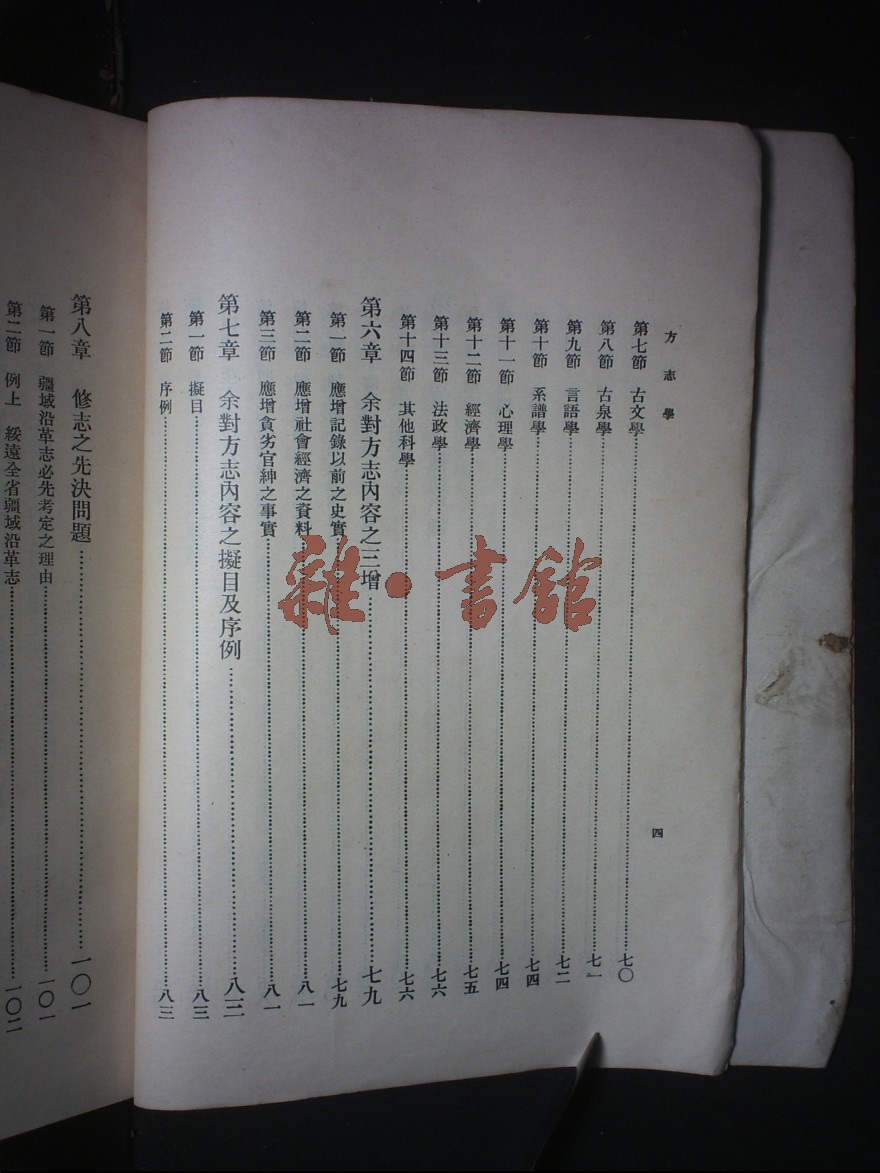 方志學
四
第七節 古文學……七〇
第八節 古泉學……七一
第九節 言語學……七二
第十節 系譜學……七四
第十一節 心理學……七四
第十二節 經濟學……七五
第十三節 法政學……七六
第十四節 其他科學……七六
第六章 余對方志內容之三增……七九
第一節 應增記錄以前之史實……七九
第二節 應增社會經濟之資料……八一
第三節 應增貪劣官紳之事實……八一
第七章 余對方志內容之擬目及序例……八三
第一節 擬目……八三
第二節 序例……八三
第八章 修志之先決問題……一〇一
第一節 疆域沿革志必先考定之理由……一〇一
第二節 例上 綏遠全省疆域沿革志……一〇二
雜·書館